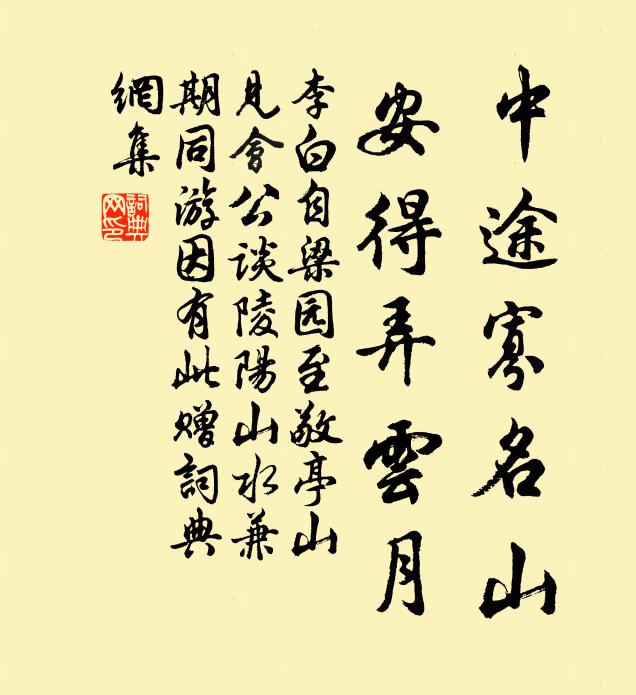 中途寡名山
安得弄雲月
李白自梁园至敬亭山
見會公谈陵陽山水兼
期同游因有此赠詞典
網集
詞典網印